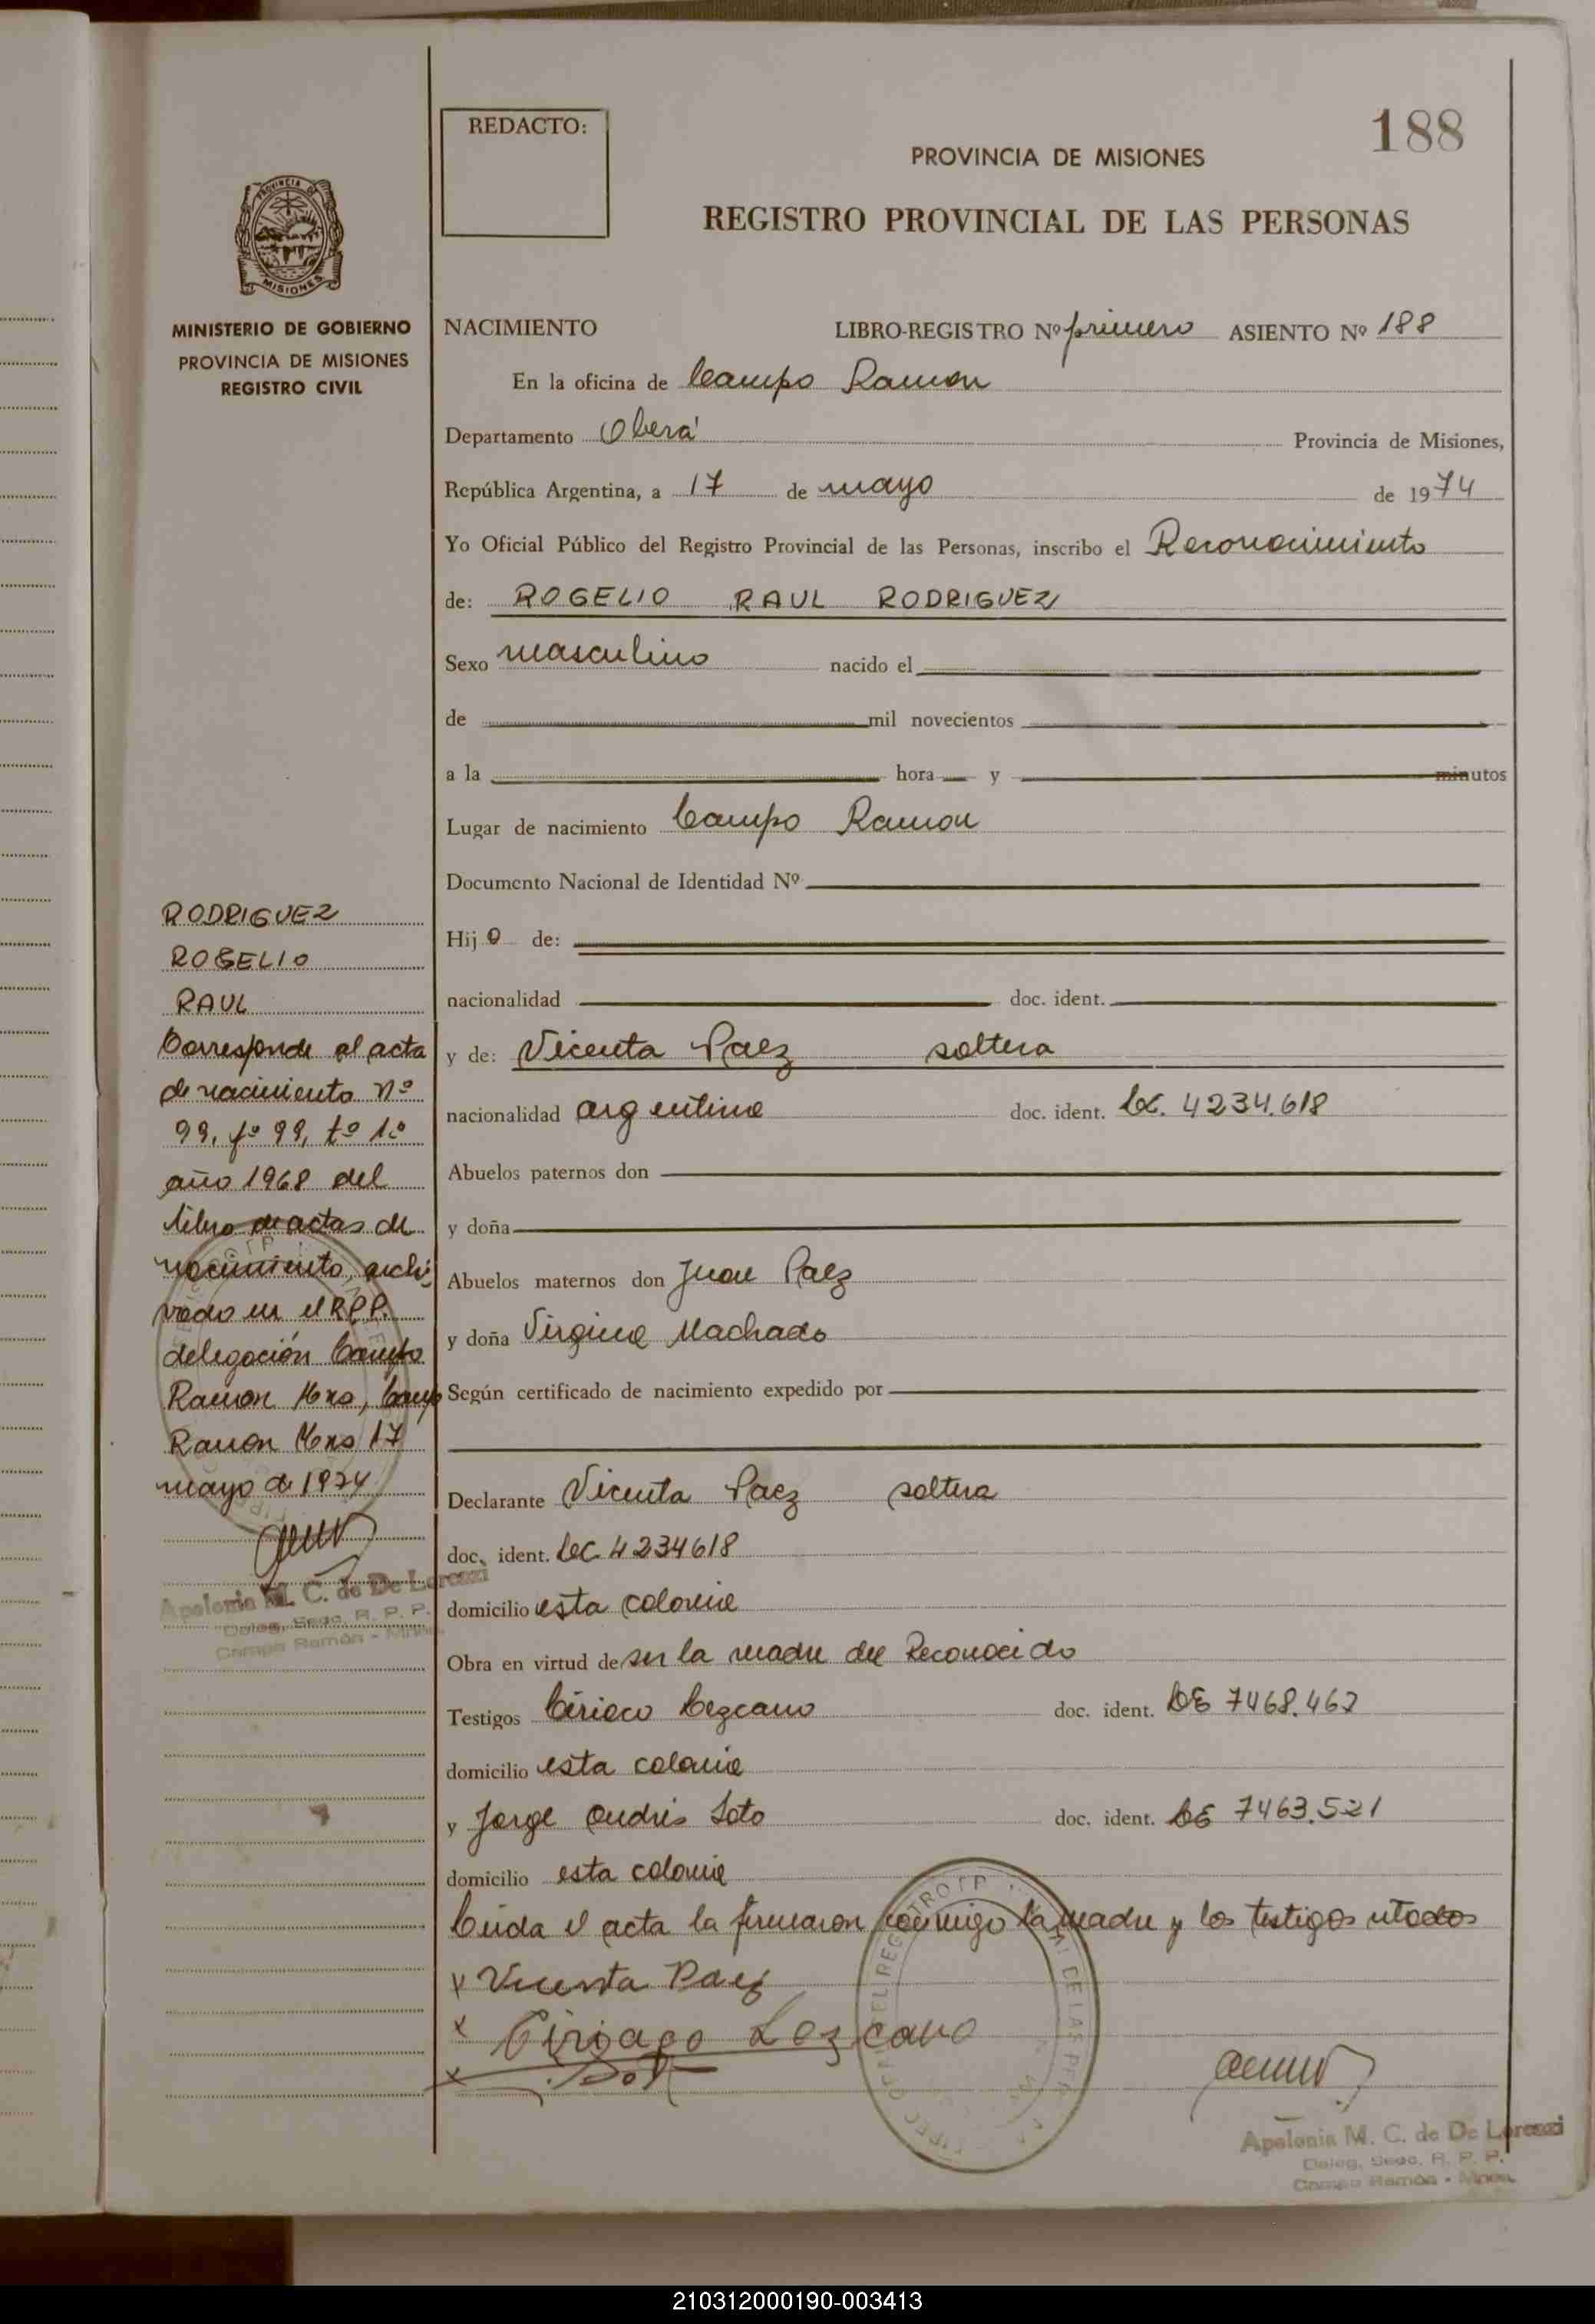 188
REDACTO:
PROVINCIA DE MISIONES
REGISTRO PROVINCIAL DE LAS PERSONAS
PROVINCIA DE MISIONES
MINISTERIO DE GOBIERNO
PROVINCIA DE MISIONES
REGISTRO CIVIL
NACIMIENTO LIBRO-REGISTRO Nº primero ASIENTO Nº 188
En la oficina de Campo Ramon
Departamento Oberá Provincia de Misiones,
República Argentina, a 17 de mayo de 1974
Yo Oficial Público del Registro Provincial de las Personas, inscribo el Reconocimiento
de: ROGELIO RAUL RODRIGUEZ
Sexo masculino nacido el
de mil novecientos
a la hora y minutos
Lugar de nacimiento Campo Ramon
Documento Nacional de Identidad Nº
Hijo de:
nacionalidad doc. ident.
y de: Vicenta Paez soltera
nacionalidad argentina doc. ident. LC. 4234.618
Abuelos paternos don
y doña
Abuelos maternos don Juan Paez
y doña Virginia Machado
Según certificado de nacimiento expedido por
Declarante Vicenta Paez soltera
doc. ident. LC. 4234618
domicilio esta colonia
Obra en virtud de ser la madre del Reconocido
Testigos Ciriaco Lezcano doc. ident. LE 7468.462
domicilio esta colonia
y Jorge Andres Soto doc. ident. LE 7463.521
domicilio esta colonia
Leida el acta la firmaron conmigo la madre y los testigos citados
x Vicenta Paez
x Ciriaco Lezcano
x Soto
Apolonia M. C. de De Lorenzi
Deleg. Secc. R. P. P.
Campo Ramón - Mnes.
RODRIGUEZ
ROGELIO
RAUL
Corresponde al acta
de nacimiento nº
99, fº 99, tº 1º
año 1968 del
libro de actas de
nacimiento, archi-
vado en el R.P.P.
delegación Campo
Ramon Mnes, Campo
Ramon Mnes 17
mayo de 1974
Apolonia M. C. de De Lorenzi
Deleg. Secc. R. P. P.
Campo Ramón - Mnes.
210312000190-003413